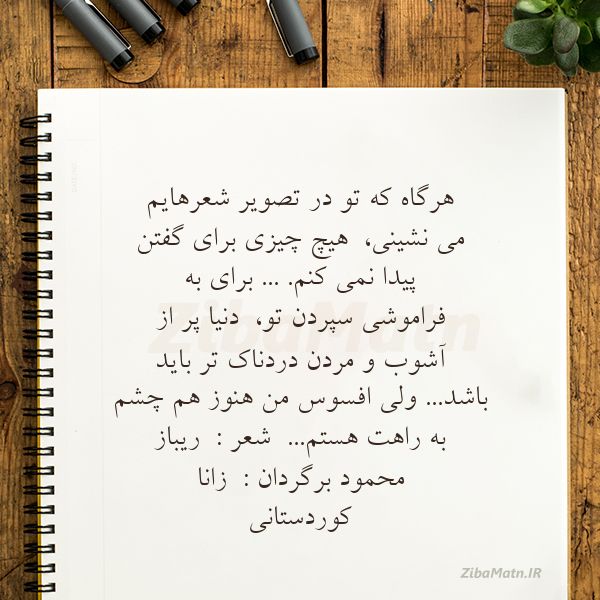 هرگاه که تو در تصویر شعرهایم
می نشینی، هیچ چیزی برای گفتن
پیدا نمی کنم. ... برای به
فراموشی سپردن تو، دنیا پر از
آشوب و مردن دردناک تر باید
باشد... ولی افسوس من هنوز هم چشم
به راهت هستم... شعر : ریباز
محمود برگردان : زانا
کوردستانی
ZibaMatn
ZibaMatn.IR